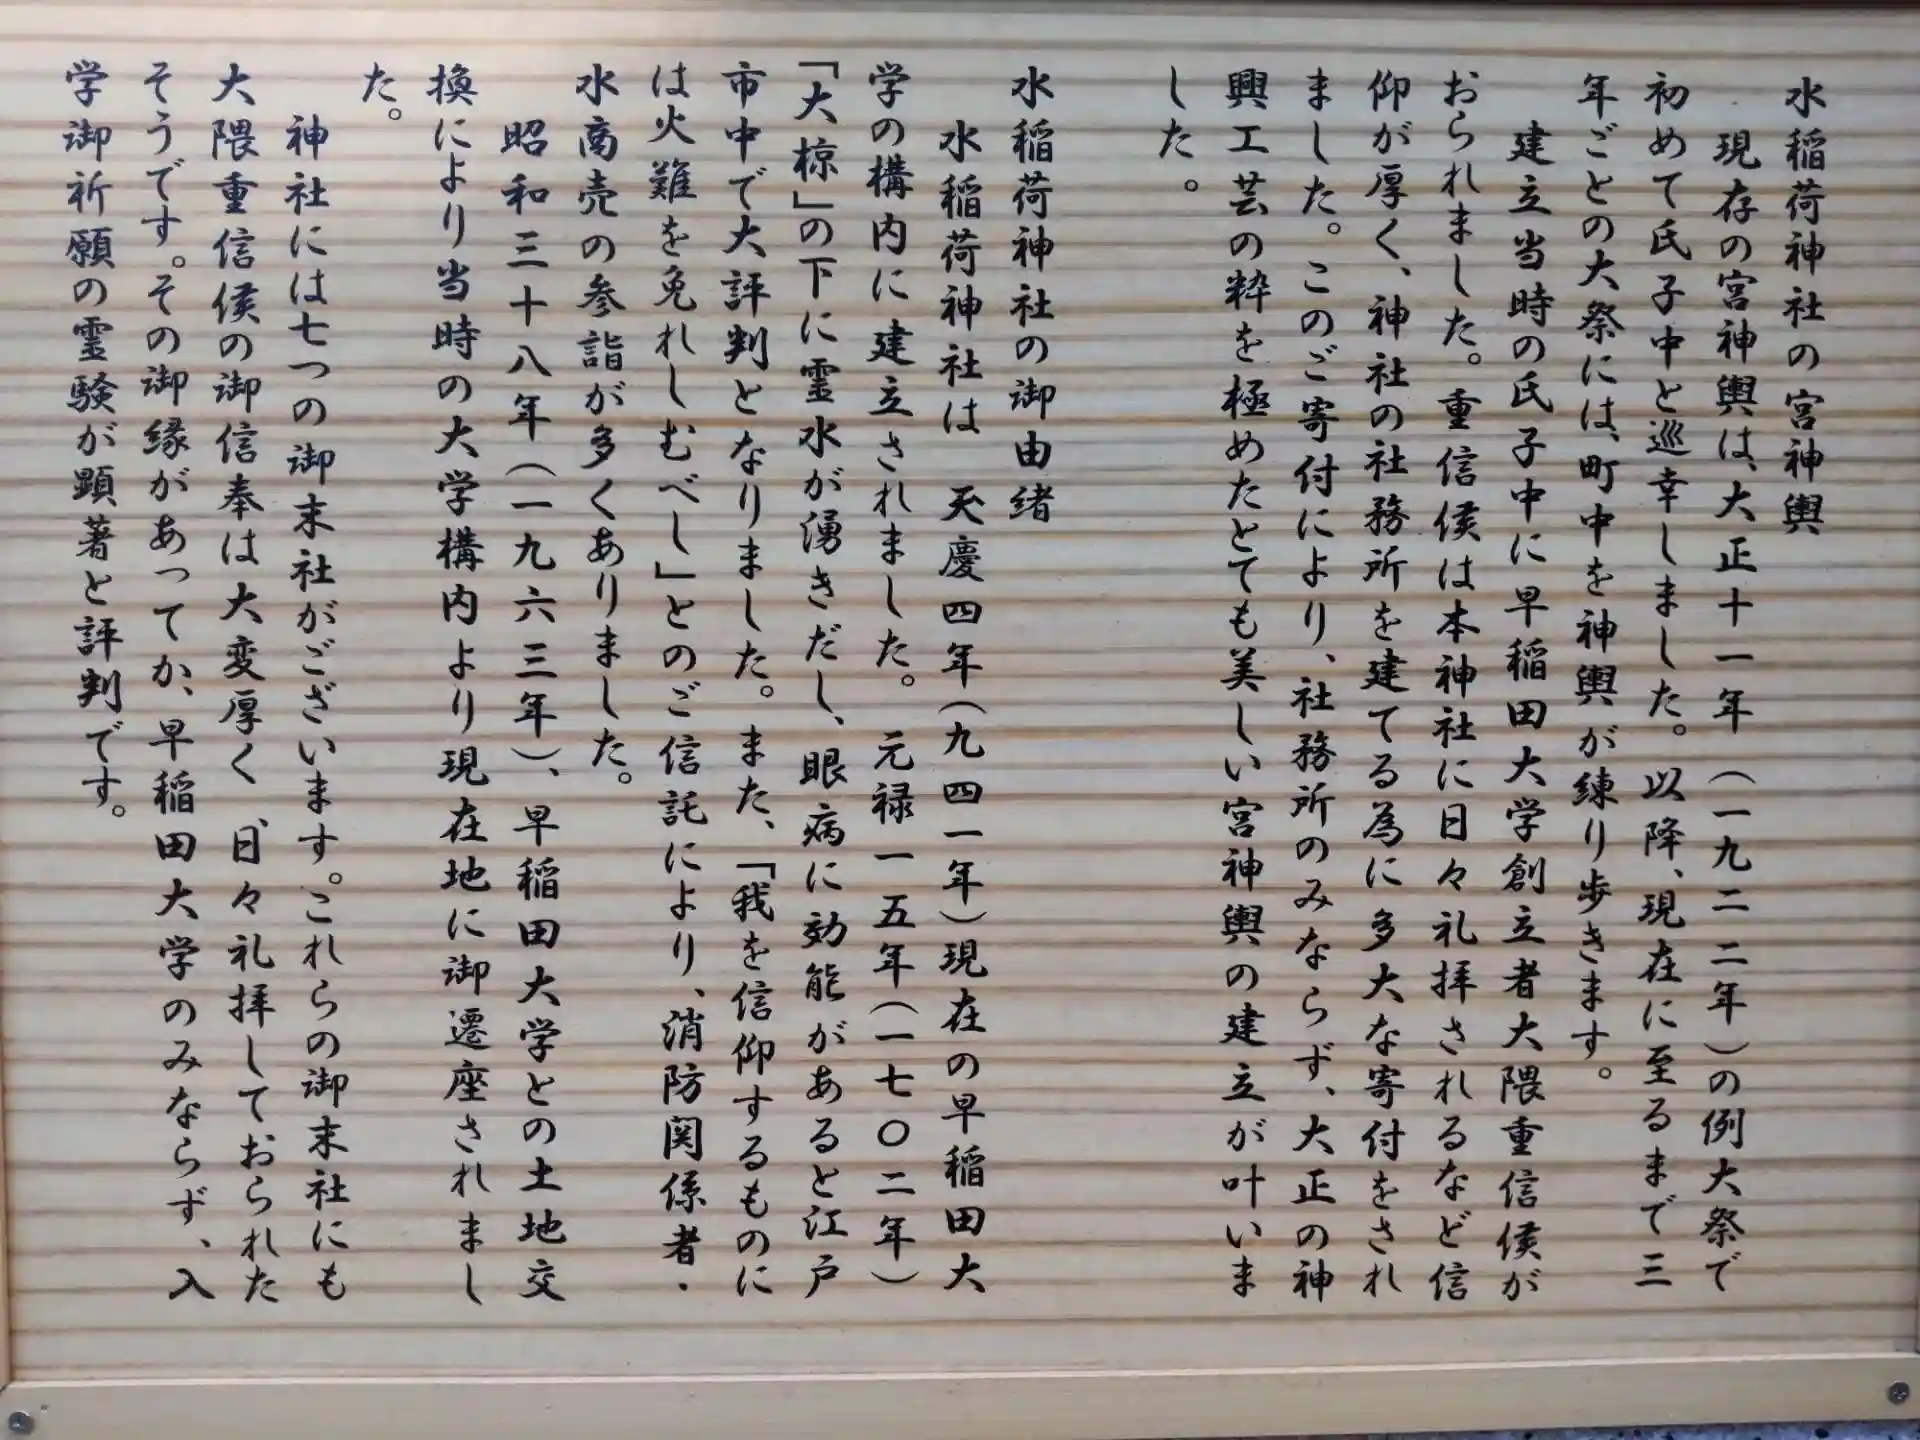 水稲荷神社の宮神輿
現存の宮神輿は、大正十一年（一九二二年）の例大祭で
初めて氏子中と巡幸しました。以降、現在に至るまで三
年ごとの大祭には、町中を神輿が練り歩きます。
建立当時の氏子中に早稲田大学創立者大隈重信侯が
おられました。重信侯は本神社に日々礼拝されるなど信
仰が厚く、神社の社務所を建てる為に多大な寄付をされ
ました。このご寄付により、社務所のみならず、大正の神
興工芸の粋を極めたとても美しい宮神輿の建立が叶いま
した。
水稲荷神社の御由緒
水稲荷神社は　天慶四年（九四一年）現在の早稲田大
学の構内に建立されました。元禄一五年（一七〇二年）
「大椋」の下に霊水が湧きだし、眼病に効能があると江戸
市中で大評判となりました。また、「我を信仰するものに
は火難を免れしむべし」とのご信託により、消防関係者・
水商売の参詣が多くありました。
昭和三十八年（一九六三年）、早稲田大学との土地交
換により当時の大学構内より現在地に御遷座されまし
た。
神社には七つの御末社がございます。これらの御末社にも
大隈重信侯の御信奉は大変厚く、日々礼拝しておられた
そうです。その御縁があってか、早稲田大学のみならず、入
学御祈願の霊験が顕著と評判です。